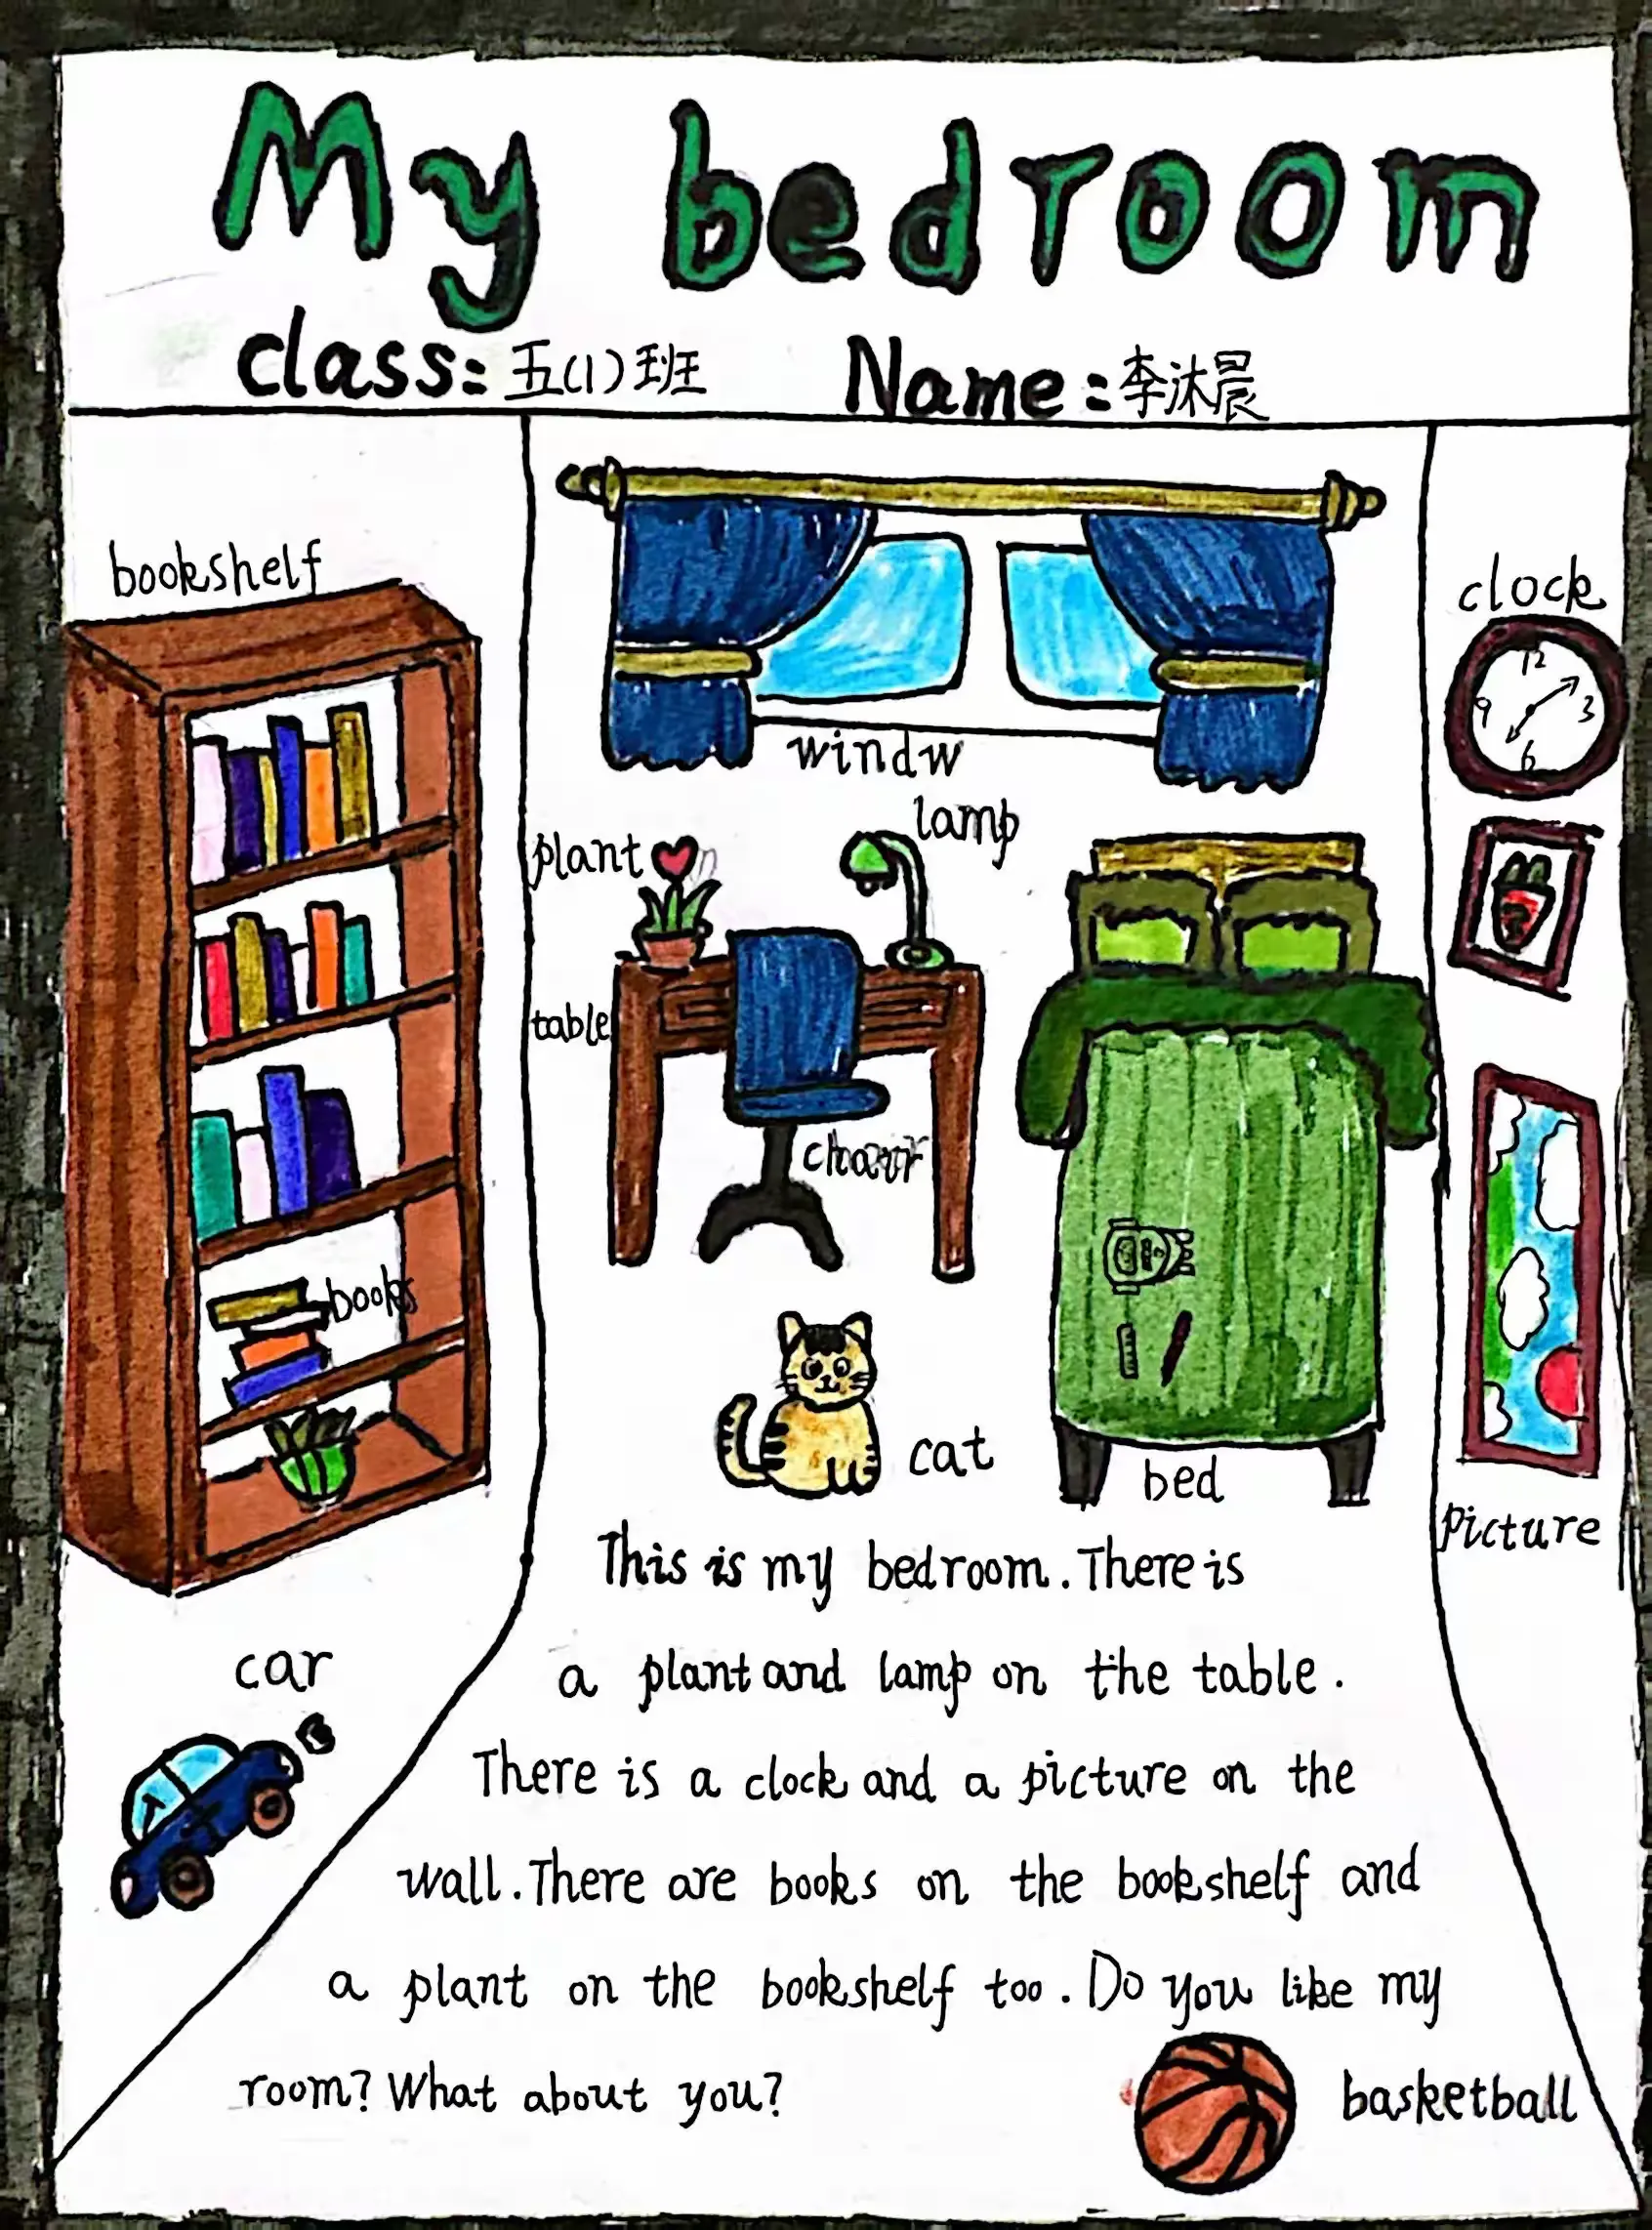 My bedroom
class: 五(1)班 Name: 李沐晨
bookshelf
clock
12
9 3
6
windw
lamp
plant
table
chair
books
cat
bed
picture
This is my bedroom. There is
car
a plant and lamp on the table.
There is a clock and a picture on the
wall. There are books on the bookshelf and
a plant on the bookshelf too. Do you like my
room? What about you?
basketball